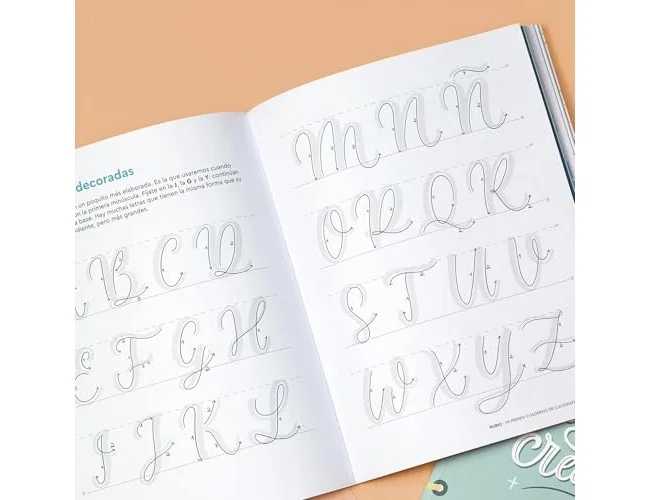 decoradas
un poquito más elaborada. Es la que usaremos cuando
la primera minúscula. Fíjate en la I, la G y la Y: continúan
base. Hay muchas letras que tienen la misma forma que su
pero más grandes.
B C D
E F G H
I J K L
M N Ñ
O P Q R
S T U V
W X Y Z
RUBIO · MI PRIMER CUADERNO DE